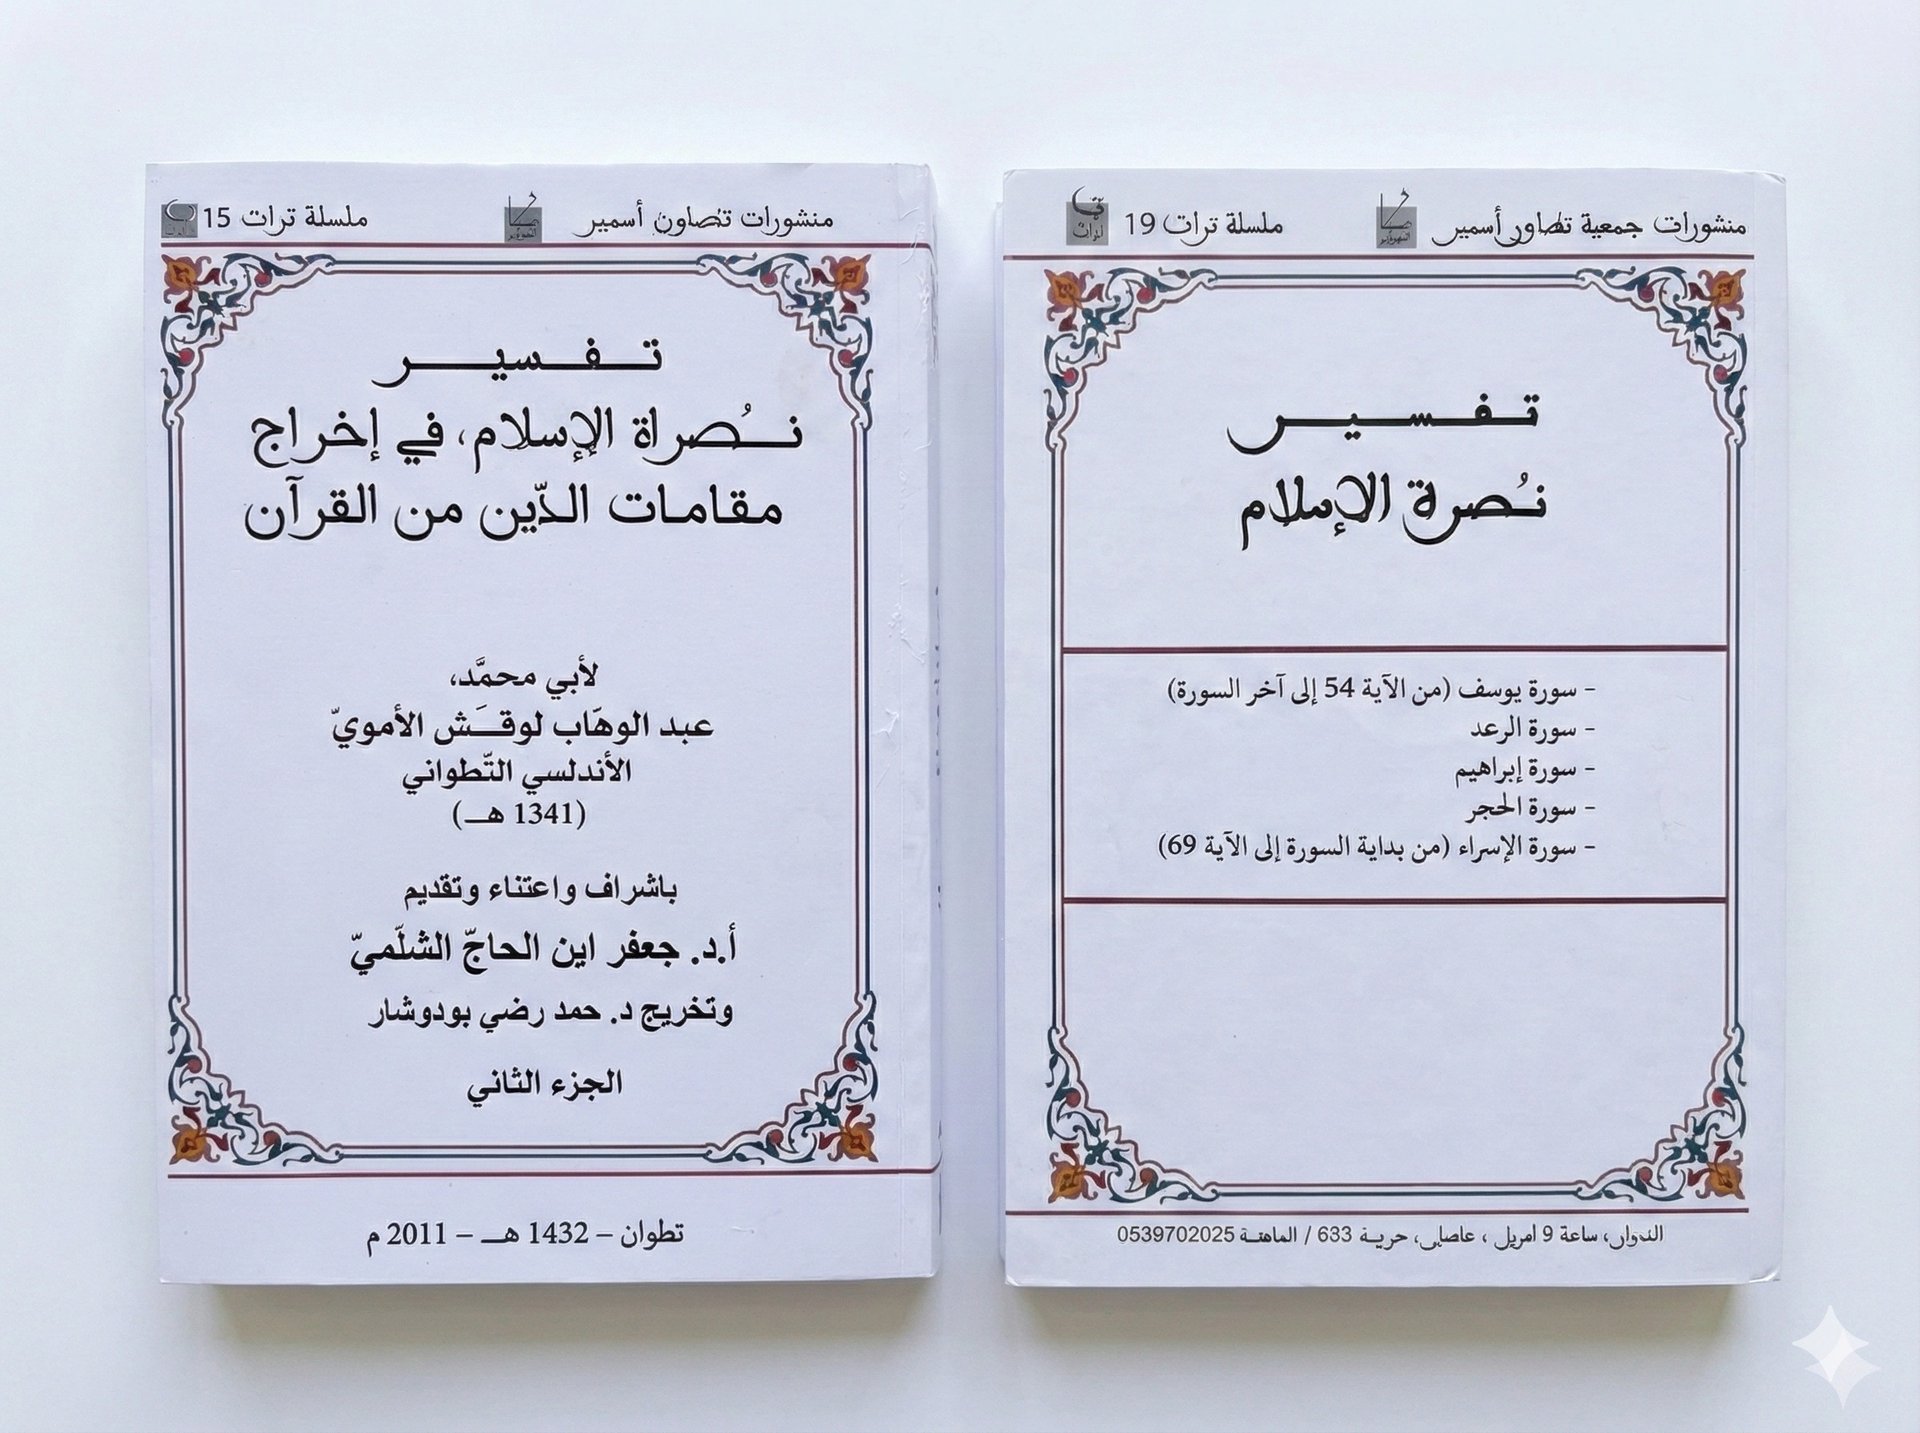 منشورات تصاون أسمير
ملسلة ترات 15
تـفـسيـر
نـُصراة الإسلام، في إخراج
مقامات الدّين من القرآن
لأبي محمَّد،
عبد الوهّاب لوقـَش الأمويّ
الأندلسي التّطواني
(1341 هـ)
باشراف واعتناء وتقديم
أ.د. جعفر اين الحاجّ الشلّميّ
وتخريج د. حمد رضي بودوشار
الجزء الثاني
تطوان – 1432 هـ – 2011 م
منشورات جمعية تطاور أسمير
ملسلة ترات 19
تـفـسيـر
نـُصرة الإسلام
- سورة يوسف (من الآية 54 إلى آخر السورة)
- سورة الرعد
- سورة إبراهيم
- سورة الحجر
- سورة الإسراء (من بداية السورة إلى الآية 69)
ساعة 9 امريل ، حرية 633 / 0539702025